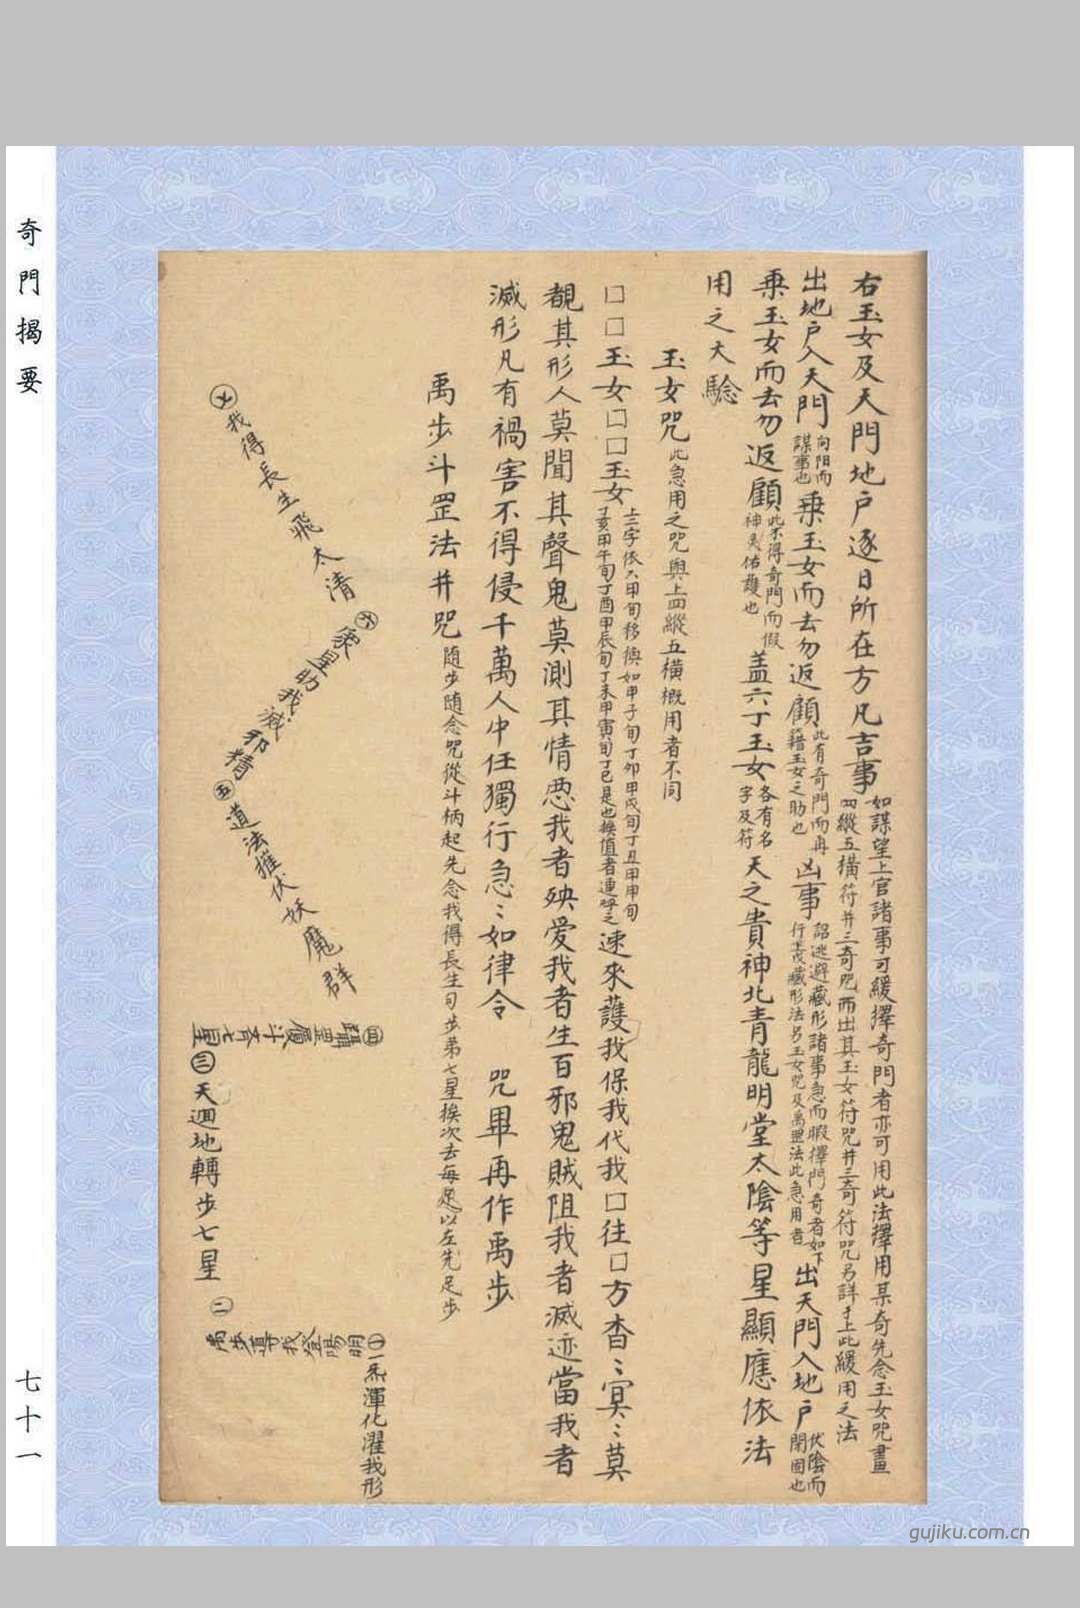 奇門揭要
右玉女及天門地户逐日所在方凡吉事如謀望上官諸事可緩擇奇門者亦可用此法擇用某奇先念玉女咒畫四縱五橫符并三奇咒而出其玉女符咒并三奇符咒另詳于上此緩用之法
出地户入天門向陽而謀事也乗玉女而去勿返顧此有奇門而再藉玉女之助也凶事詔逃避藏形諸事急而暇擇門奇者如下行六戊藏形法另玉女咒及禹罡法此急用者出天門入地户伏陰而閉固也
乗玉女而去勿返顧此不得奇門而假神灵佑護也盖六丁玉女各有名字及符天之貴神北青龍明堂太陰等星顯應依法
用之大驗
玉女咒此急用之咒與上四縱五橫概用者不同
囗囗玉女囗囗玉女上二字依六甲旬移換如甲子旬丁卯甲戌旬丁丑甲申旬丁亥甲午旬丁酉甲辰旬丁未甲寅旬丁巳是也換值者連呼之速來護我保我代我囗往囗方杳〻冥〻莫
覩其形人莫聞其聲鬼莫測其情惡我者殃愛我者生百邪鬼賊阻我者滅迹當我者
滅形凡有禍害不得侵千萬人中任獨行急〻如律令 咒畢再作禹步
禹步斗罡法并咒随步随念咒從斗柄起先念我得長生句步弟七星挨次去每足以左先足步
㊀一炁渾化濯我形
㊁禹步導我登陽明
㊂天迴地轉步七星
㊃躡罡履斗齊七星
㊄道法摧伏妖魔群
㊅衆星助我滅邪精
㊆我得長生飛太清
七十一
gujiku.com.cn